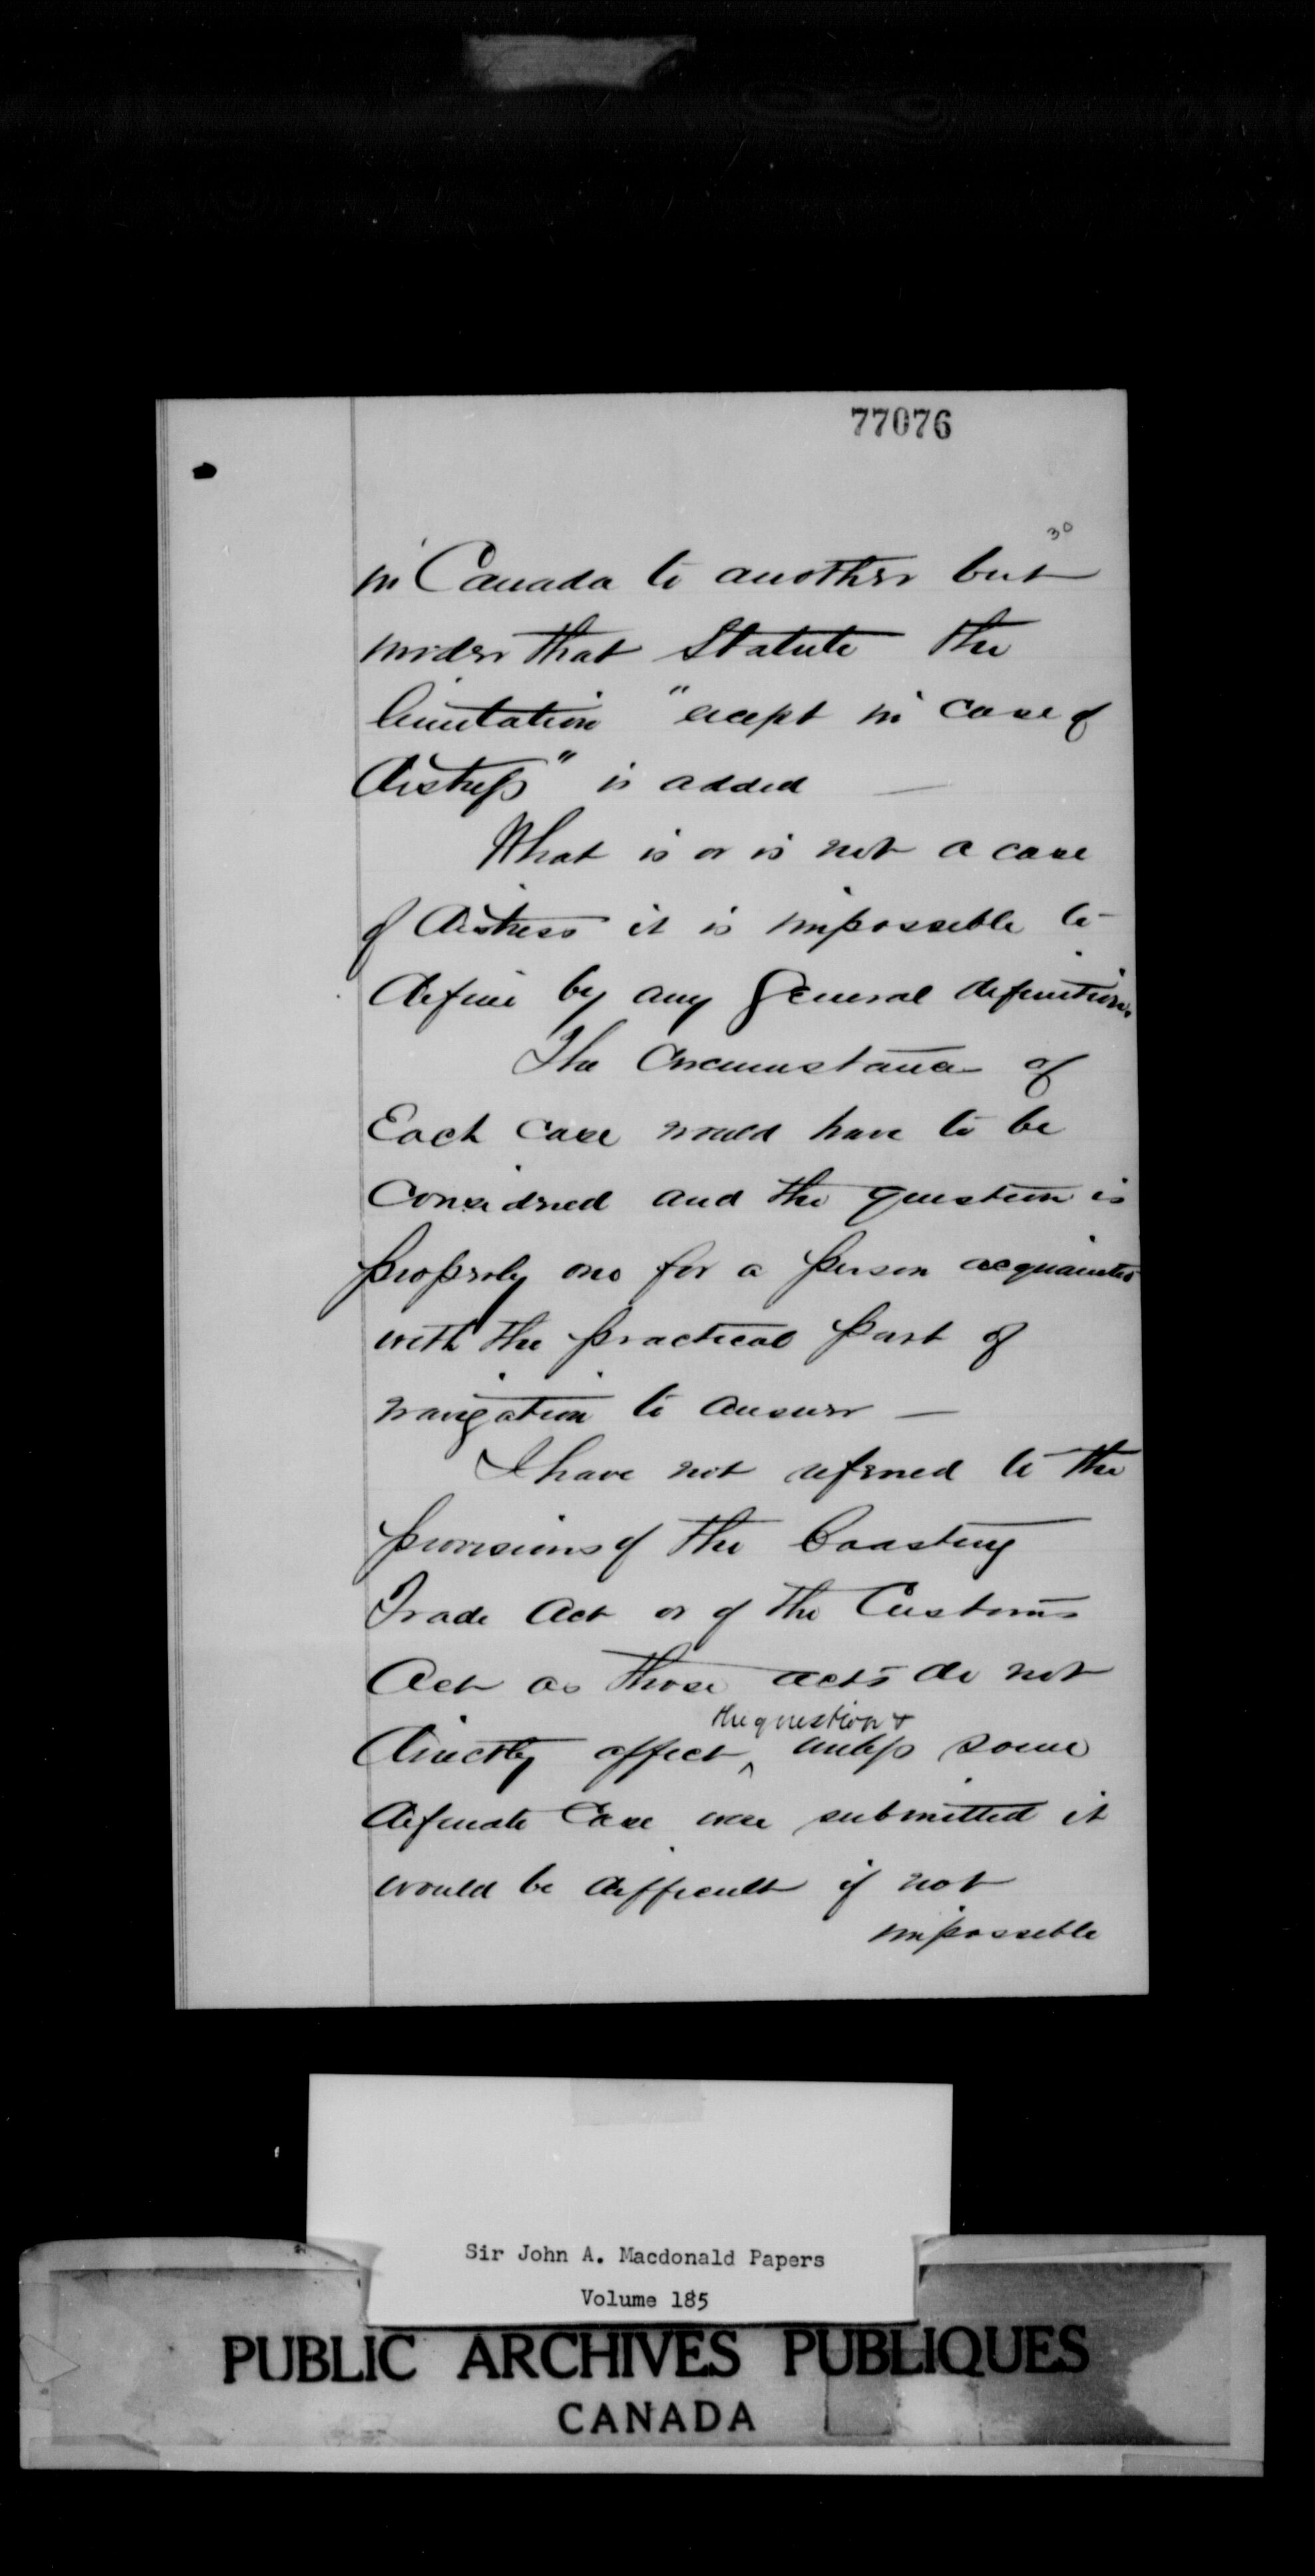 77076
30
in Canada to another but
under that Statute the
limitation "except in case of
distress" is added —
What is or is not a case
of distress it is impossible to
define by any General definition.
The Circumstances of
Each case would have to be
Considered and the question is
properly one for a person acquainted
with the practical part of
navigation to answer —
I have not referred to the
provisions of the Coasting
Trade Act or of the Customs
Act as those acts do not
the question &
directly affect ^ unless some
definate Case were submitted it
would be difficult if not
impossible
Sir John A. Macdonald Papers
Volume 185
PUBLIC ARCHIVES PUBLIQUES
CANADA